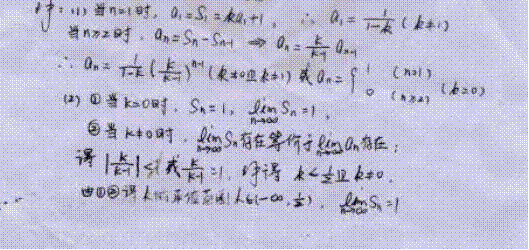 解:(1) 当n=1时, a₁=S₁=ka₁+1, ∴ a₁=1/(1-k) (k≠1)
当n≥2时, aₙ=Sₙ-Sₙ₋₁ ⇒ aₙ=k/(k-1) aₙ₋₁
∴ aₙ=1/(1-k) (k/(k-1))ⁿ⁻¹ (k≠0且k≠1) 或 aₙ={1 (n=1) 0 (n≥2) (k=0)
(2) ①当k=0时, Sₙ=1, lim n→∞ Sₙ=1,
②当k≠0时, lim n→∞ Sₙ存在等价于lim n→∞ aₙ存在;
得 |k/(k-1)|<1或k/(k-1)=1, 解得 k<1/2且k≠0.
由①②得k的取值范围k∈(-∞, 1/2), lim n→∞ Sₙ=1